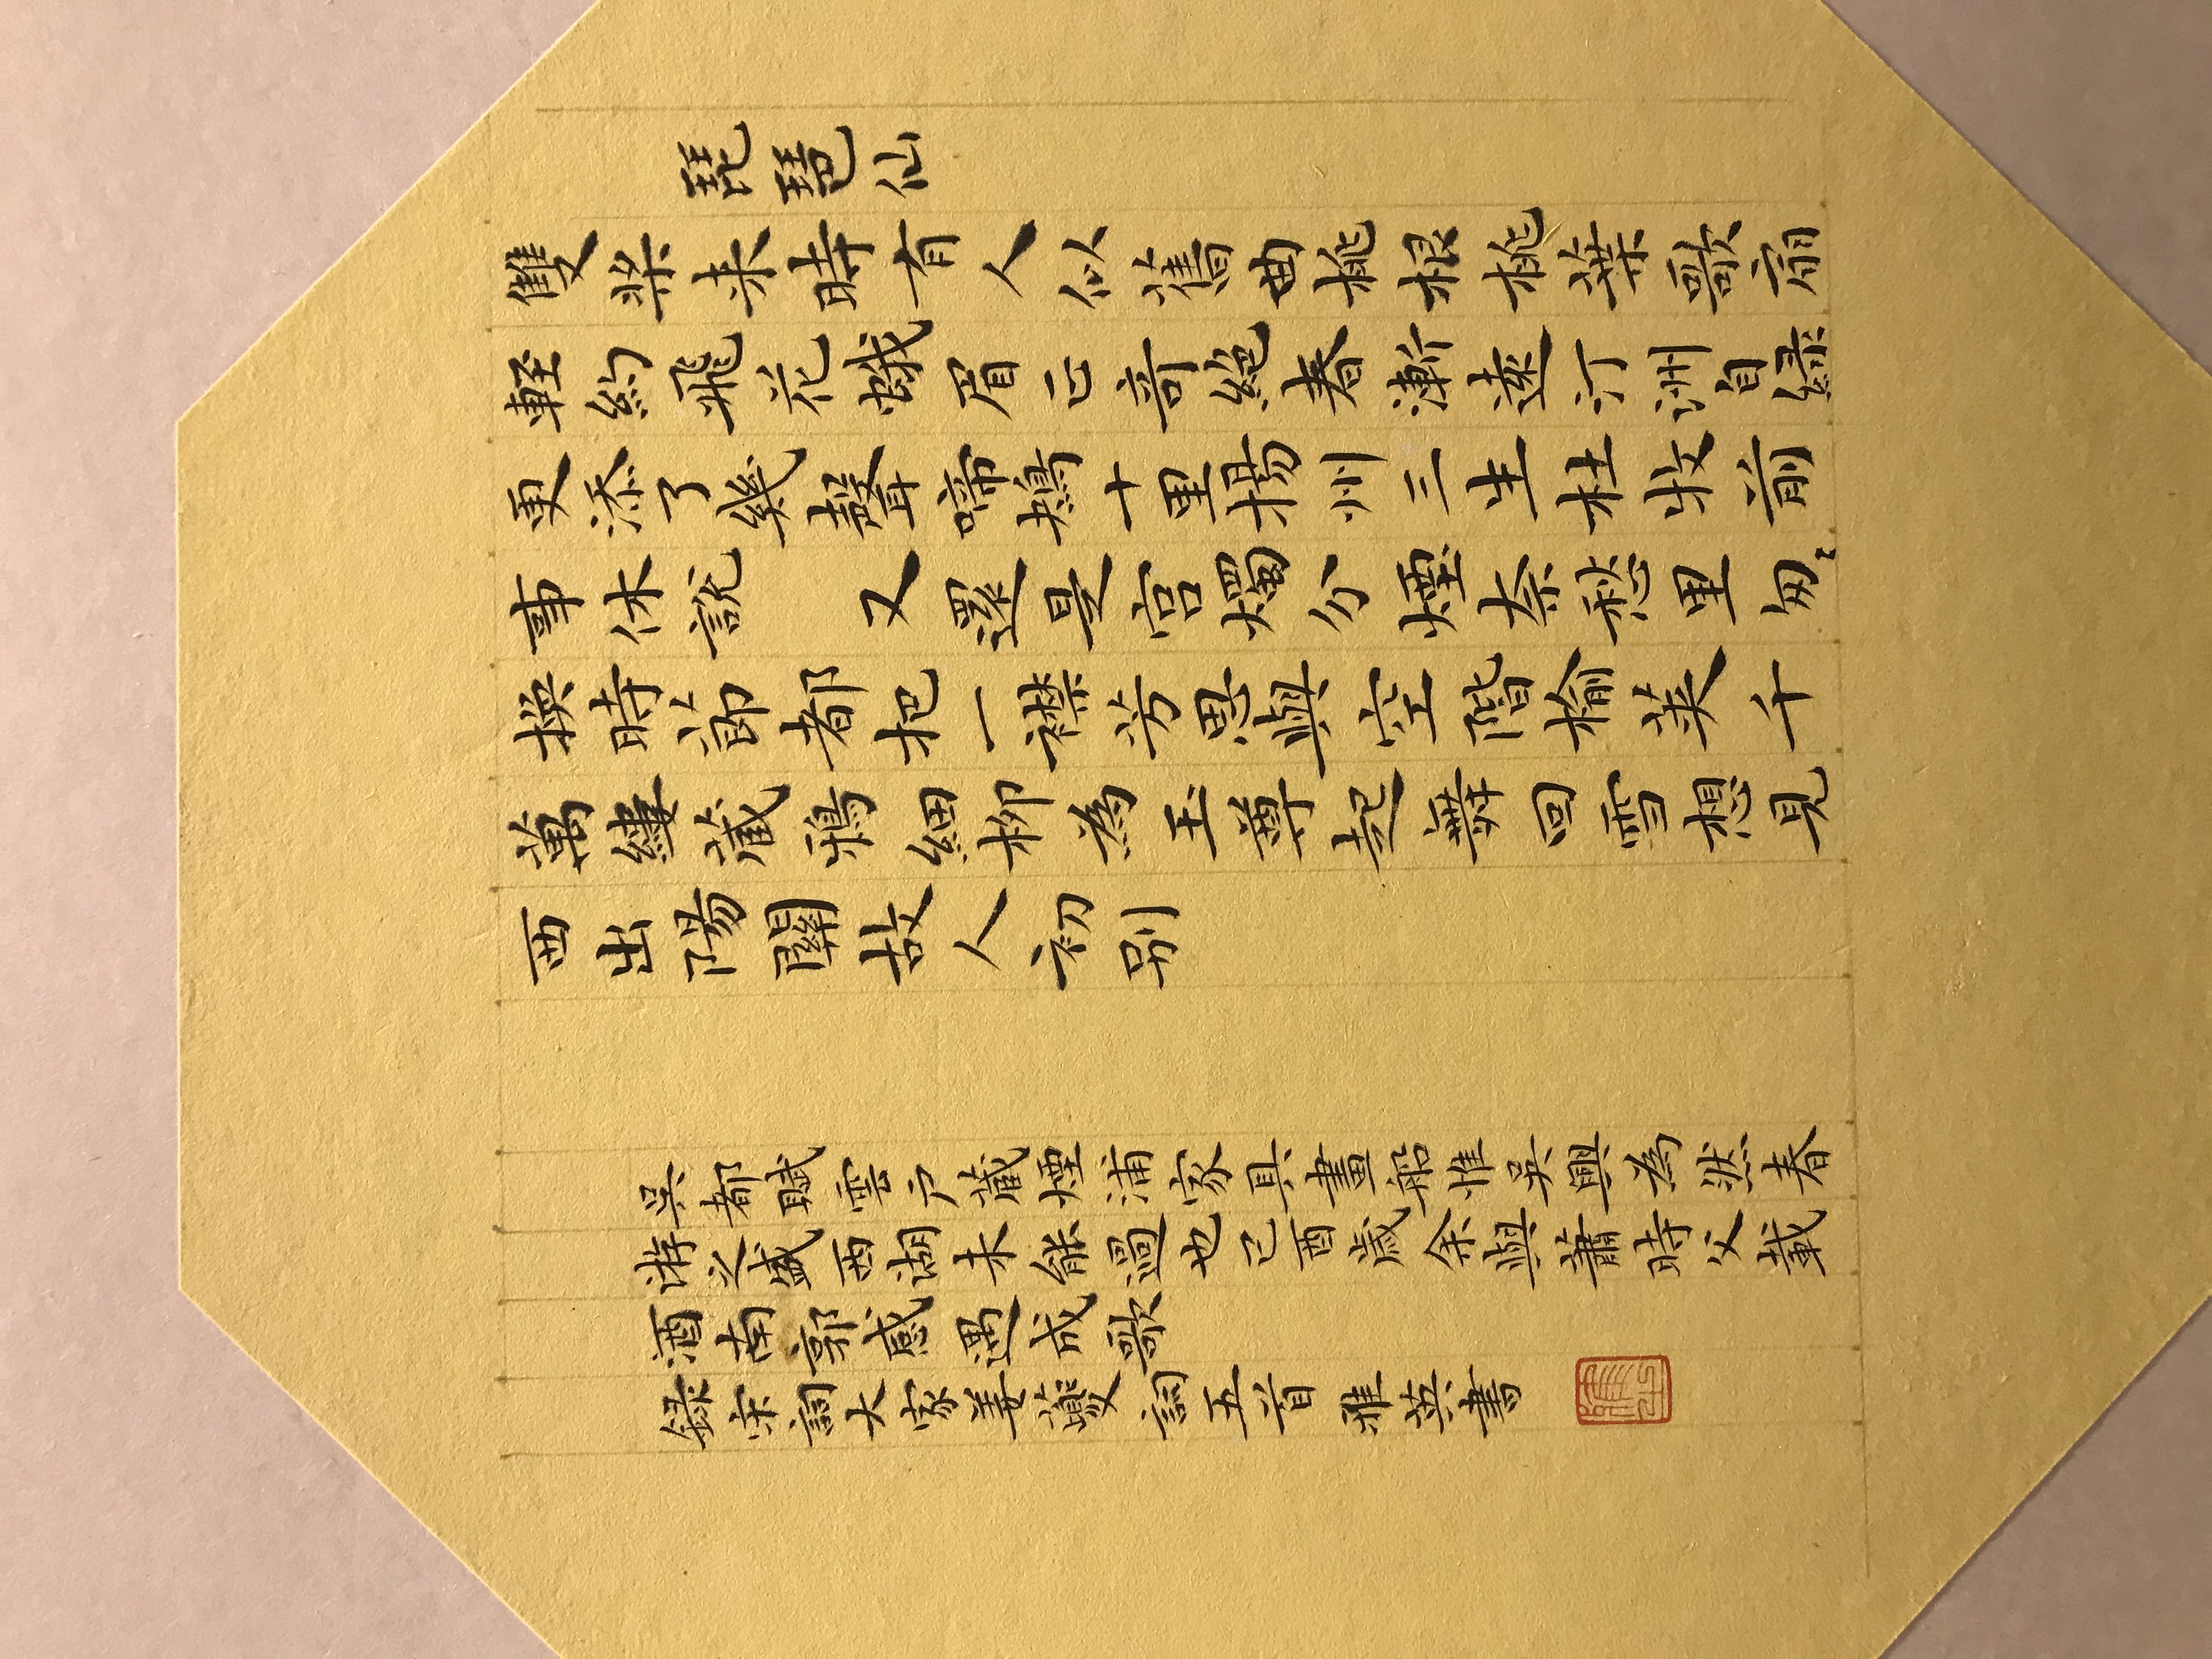 琵琶仙
雙槳来時有人似舊曲桃根桃葉歌扇
輕約飛花蛾眉正奇絕春漸遠汀洲自緑
更添了幾聲啼鴂十里揚州三生杜牧前
事休說　又還是宫燭分煙奈愁里匆々
換時節都把一襟芳思與空階榆莢千
萬縷蔵鴉細柳為玉尊起舞回雪想見
西出陽關故人初别
吳都賦雲户蔵煙浦家具畫船惟吳興為然春
游之盛西湖未能過也己酉歲余與蕭時父載
酒南郭感遇成歌
録宋詞大家姜夔詞五首雅英書